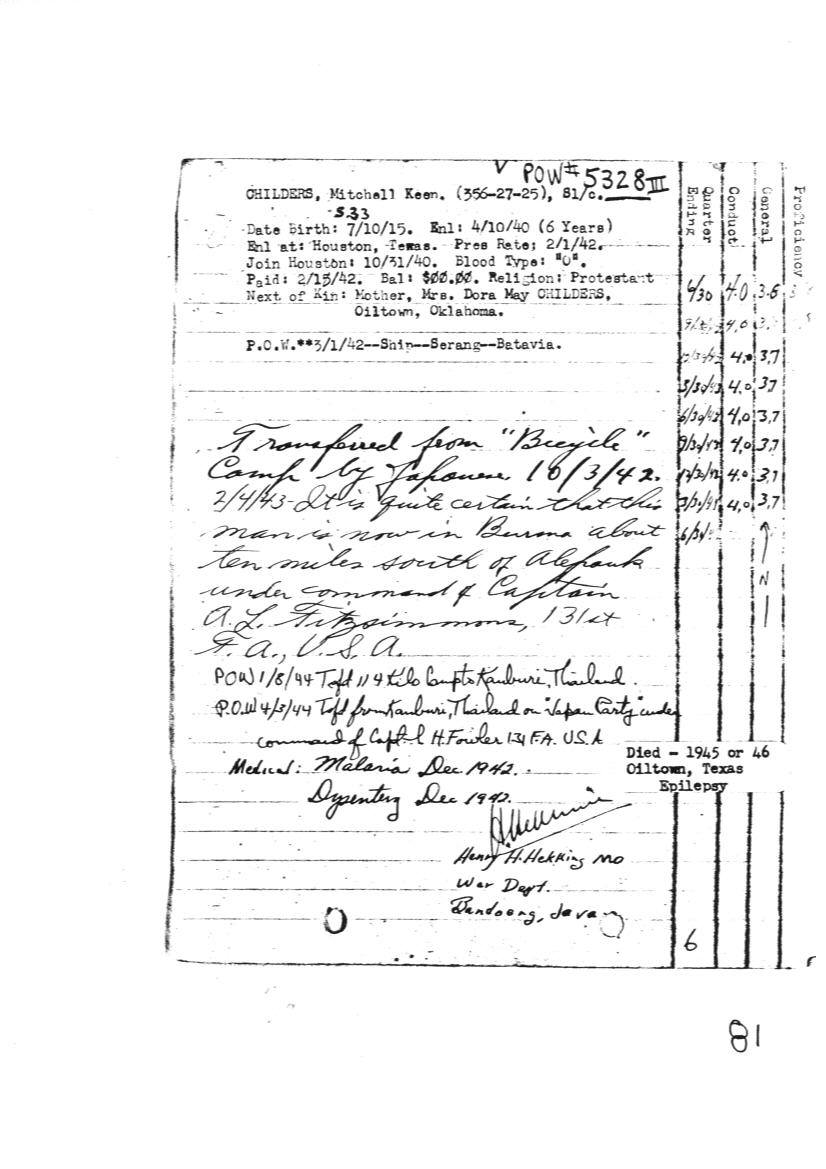 V POW# 5328 III
CHILDERS, Mitchell Keen. (356-27-25), S1/c.
5.33
Date Birth: 7/10/15. Enl: 4/10/40 (6 Years)
Enl at: Houston, Texas. Pres Rate; 2/1/42.
Join Houston: 10/31/40. Blood Type: "O".
Paid: 2/15/42. Bal: $00.00. Religion: Protestant
Next of Kin: Mother, Mrs. Dora May CHILDERS,
Oiltown, Oklahoma.
P.O.W.**3/1/42--Ship--Serang--Batavia.
Transferred from "Bicycle"
Camp by Japanese 10/3/42.
2/4/43-It is quite certain that this
man is now in Burma about
ten miles south of Alepauk
under command of Captain
A. L. Fitzsimmons, 131st
F. A., U. S. A.
POW 1/8/44 Tsfd 114 Kilo Camp to Kanburi, Thailand.
P.O.W 4/3/44 Tsfd from Kanburi, Thailand on "Japan Party" under
command of Capt H. Fowler 131 FA. USA
Medical: Malaria Dec 1942.
Dysentery Dec 1942.
Henry H. Hekking MD
War Dept.
Bandoeng, Java
Died - 1945 or 46
Oiltown, Texas
Epilepsy
Quarter Ending Conduct General Proficiency
6/30 4.0 3.6
4.0 3.
4.0 3.7
3/30/43 4.0 3.7
6/30/43 4.0 3.7
4.0 3.7
4.0 3.7
4.0 3.7
6/3
N
6
81